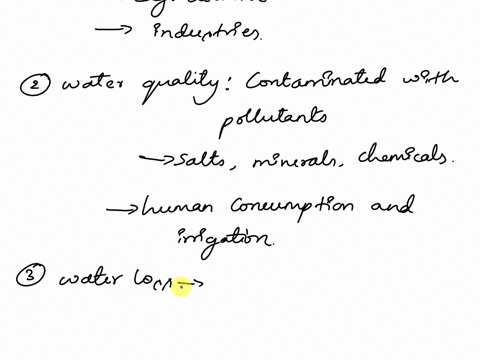 → industries.
② water quality: Contaminated with
pollutants
→ salts, minerals, chemicals.
→ human Consumption and
irrigation.
③ water →